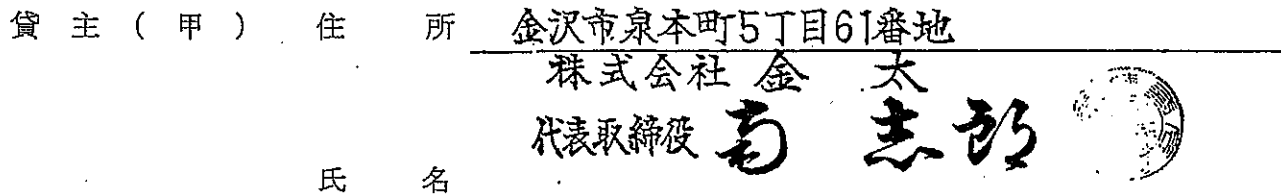 貸主(甲) 住所 金沢市泉本町5丁目61番地
株式会社 金太
代表取締役 南 志郎
氏名